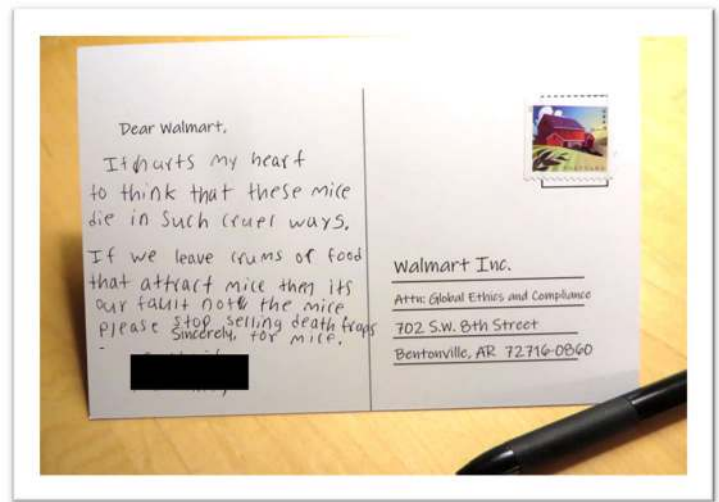 Dear Walmart,
It hurts my heart
to think that these mice
die in such cruel ways.
If we leave crums of food
that attract mice then its
our fault not the mice
please stop selling death traps
for mice.
Sincerely,
Walmart Inc.
Attn: Global Ethics and Compliance
702 S.W. 8th Street
Bentonville, AR 72716-0860